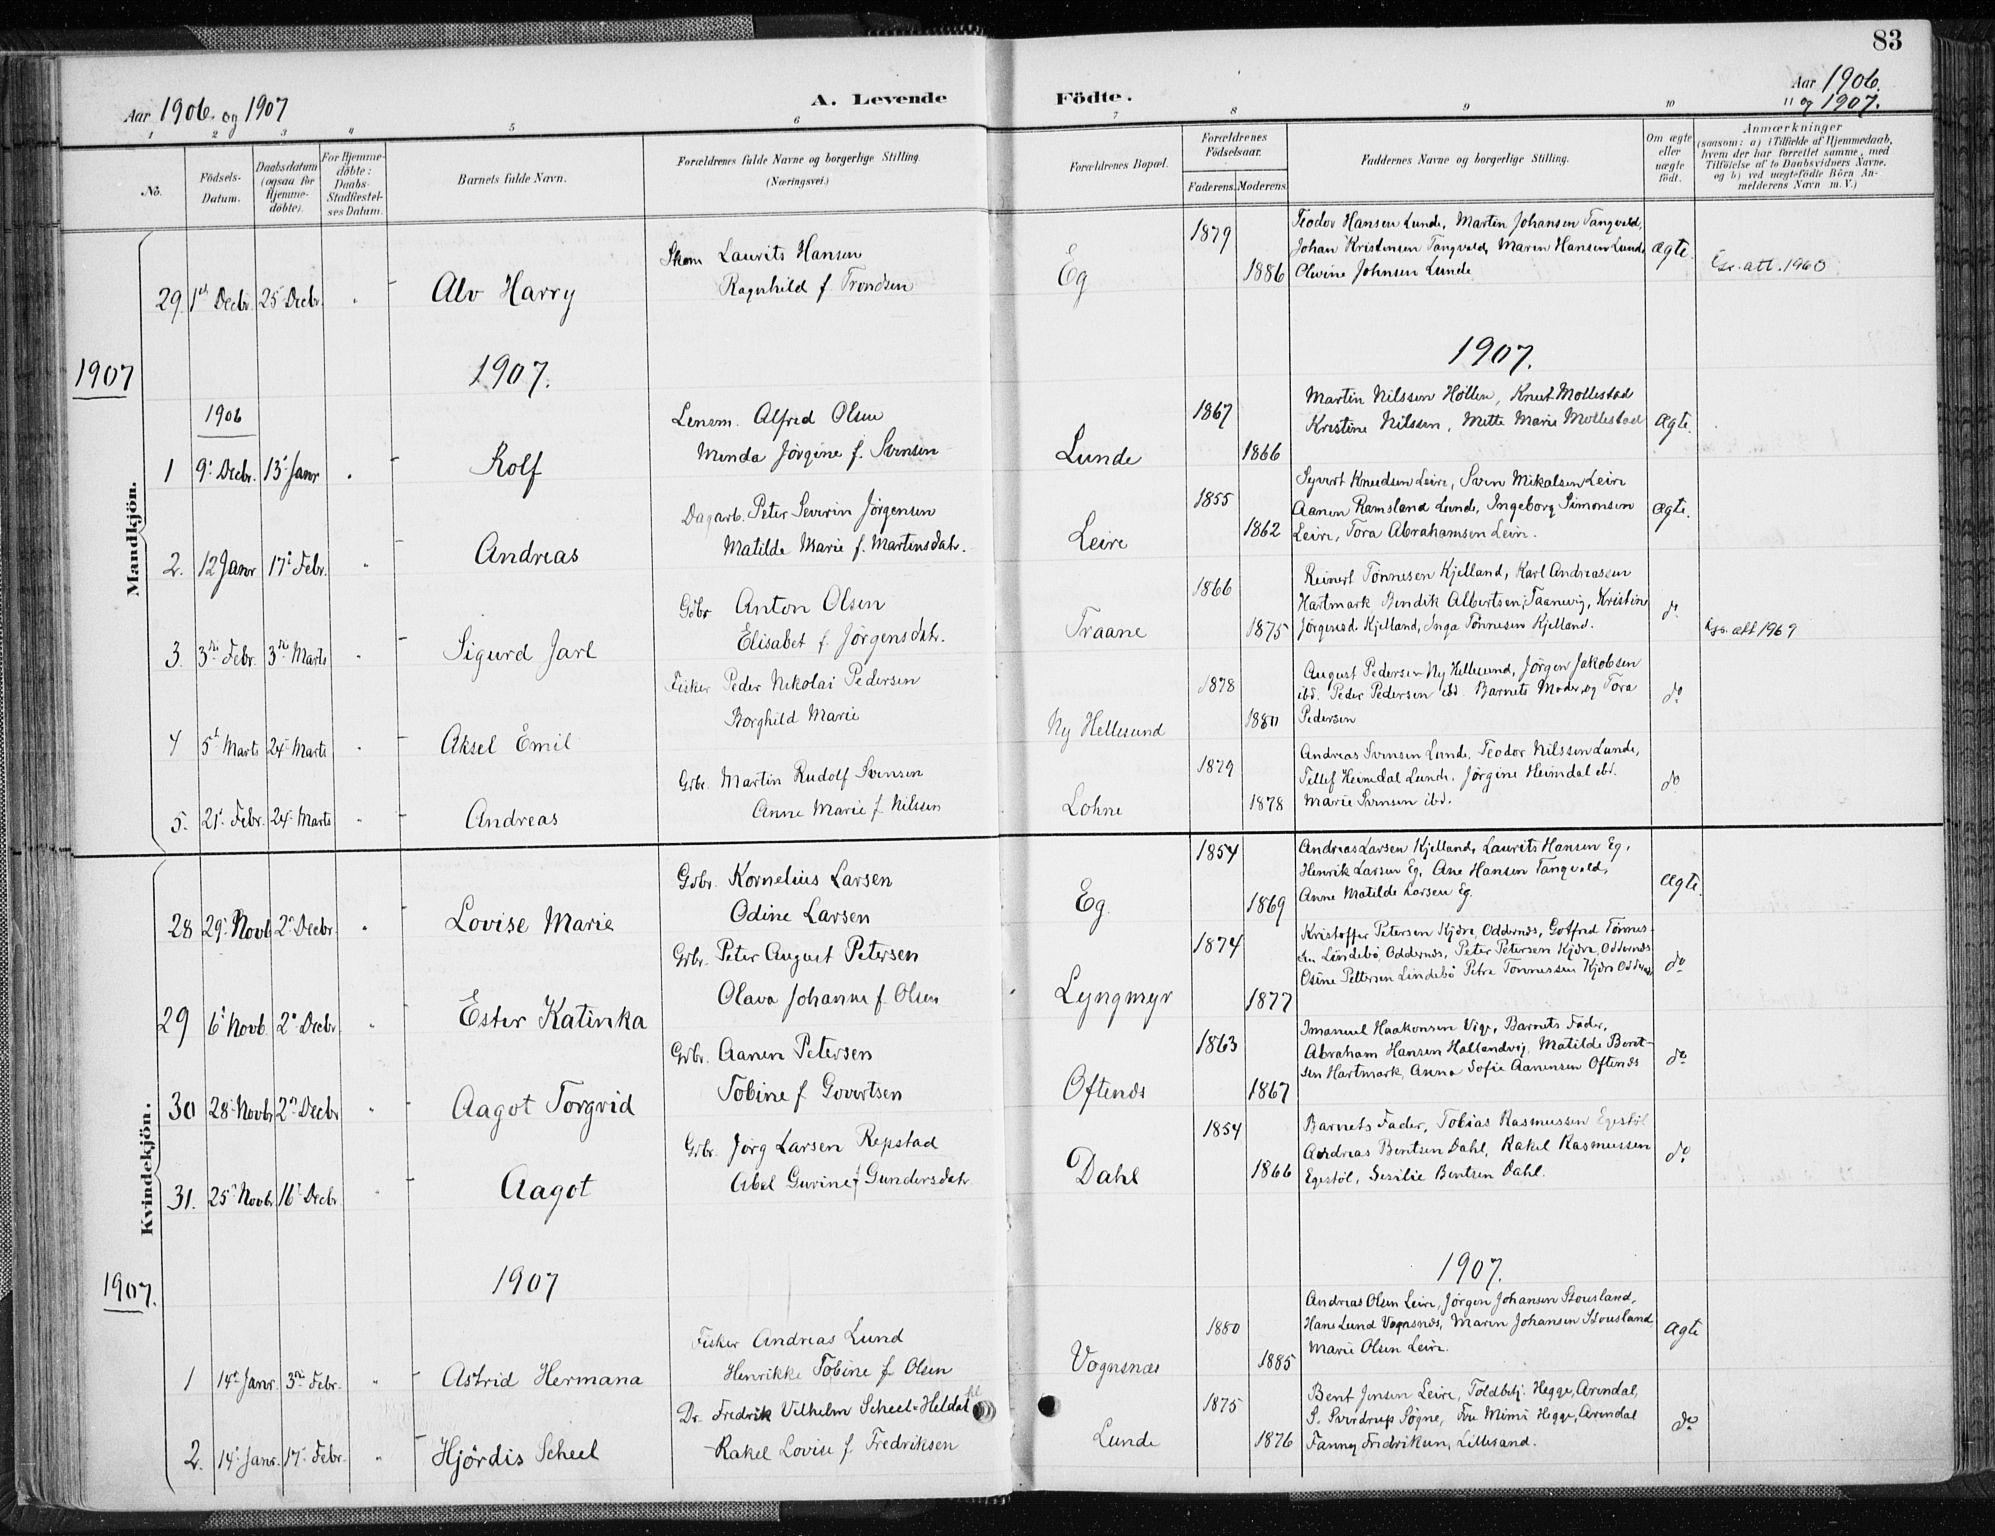 83
Aar 1906 og 1907
A. Levende Födte.
Aar 1906.
og 1907.
1 2 3 4 5 6 7 8 9 10 11
No.
Födsels-Datum.
Daabsdatum (ogsaa for Hjemme-döbte).
For Hjemme-döbte: Daabs-Stadfæstel-ses Datum.
Barnets fulde Navn.
Forældrenes fulde Navne og borgerlige Stilling.
(Næringsvei.)
Forældrenes Bopæl.
Forældrenes Födselsaar.
Faderens. Moderens.
Faddernes Navne og borgerlige Stilling.
Om ægte eller uægte födt.
Anmærkninger
(saasom: a) i Tilfælde af Hjemmedaab,
hvem der har forrettet samme, med
Tilföielse af to Daabsvidners Navne.
og b) ved uægtefödte Börn An-
melderens Navn m. V.)
Mandkjön.
29. 1ste Decbr. 25 Decbr. " Alv Harry
Skom Laurits Hansen
Ragnhild f. Trondsen
Eg 1879 1886
Teodor Hansen Lunde, Martin Johansen Tangvald,
Johan Kristensen Tangvald, Maren Hansen Lunde
Olevine Johnsen Lunde
Ægte.
att. 1960
1907
1907.
1907.
1906
1 9. Decbr. 13. Janr " Rolf
Lensm. Alfred Olsen
Minda Jörgine f. Svensen
Lunde 1867 1866
Martin Nilssen Höllen, Knut Mollestad
Kristine Nilssen, Mette Marie Mollestad
Ægte.
2. 12 Janr 17. Febr. " Andreas
Dagarb. Peter Severin Jörgensen
Matilde Marie f. Martinsdatr.
Leire 1855 1862
Syvert Knudsen Leire, Sven Mikalsen Leire
Aanen Ramsland Lunde, Ingeborg Simonsen
Leire, Tora Abrahamsen Leire.
Ægte.
3. 3die Febr. 3die Marts " Sigurd Jarl
Gdbr Anton Olsen
Elisabet f. Jörgensdatr.
Traane 1866 1875
Reinert Tönnesen Kjelland, Karl Andreassen
Hartmark, Bendik Albertsen, Taanevig, Kristine
Jörgensd. Kjelland, Inga Tönnesen Kjelland.
do
att 1969
4 5te Marts 24. Marts " Aksel Emil
Fisker Peder Nikolai Pedersen
Borghild Marie
Ny Hellesund 1878 1880
August Pedersen Ny Hellesund, Jörgen Jakobsen
ibd. Peder Pedersen ibd. Barnets Moder, og Tora
Pedersen
do
5. 21. Febr. 24. Marts " Andreas
Grbr. Martin Rudolf Svensen
Anne Marie f. Nilssen
Lohne 1879 1878
Andreas Svensen Lunde, Teodor Nilssen Lunde,
Tellef Heimdal Lunde, Jörgine Heimdal ibd.
Marie Svensen ibd.
do
Kvindekjön.
28 29. Novb 2. Decbr. " Lovise Marie
Grbr. Kornelius Larsen
Odine Larsen
Eg. 1854 1869
Andreas Larsen Kjelland, Laurits Hansen Eg,
Henrik Larsen Eg, Ane Hansen Tangvald,
Anne Matilde Larsen Eg.
Ægte.
29 6. Novb. 2. Decbr " Ester Katinka
Grbr. Peter August Petersen
Olava Johanne f. Olsen
Lyngmyr 1874 1877
Kristoffer Petersen Kjære, Oddernes, Gotfred Tönnes-
sen Lindebö, Oddernes, Peter Petersen Kjære, Oddernes
Osine Pettersen Lindebö Petra Tönnessen Kjære Oddernes
do
30 28. Novbr 2. Decbr " Aagot Torgvid
Grbr. Aanen Petersen
Tobine f Govertsen
Oftenes 1863 1867
Imanuel Haakonsen Vige, Barnets Fader,
Abraham Hansen Hallandvig, Matilde Berot-
sen Hartmark, Anna Sofie Aanensen Oftenes
do
31. 25. Novbr 16. Decbr " Aagot
Grbr. Jörg Larsen Repstad
Abel Gurine f Gundersdatr
Dahl 1854 1866
Barnets Fader, Tobias Rasmussen Egestöl
Andreas Bentsen Dahl, Rakel Rasmussen
Egestöl, Sesilie Bentsen Dahl.
do
1907.
1907
1907.
1 14. Janr. 3die Febr. " Astrid Hermana
Fisker Andreas Lund
Henrikke Tobine f Olsen
Vognsnæs 1880 1885
Andreas Olsen Leire, Jörgen Johansen Stousland,
Hans Lund Vognsnes, Maren Johansen Stousland,
Marie Olsen Leire.
Ægte
2. 14. Janr. 17. Febr. " Hjördis Scheel
Dr. Fredrik Vilhelm Scheel-Heldal
Rakel Lovise f Fredriksen
Lunde 1875 1876
Bent Jensen Leire, Toldbetj. Hegge, Arendal,
S. Sverdrup Søgne, Fru Mimi Hegge, Arendal
Fanny Fredriksen, Lillesand.
do